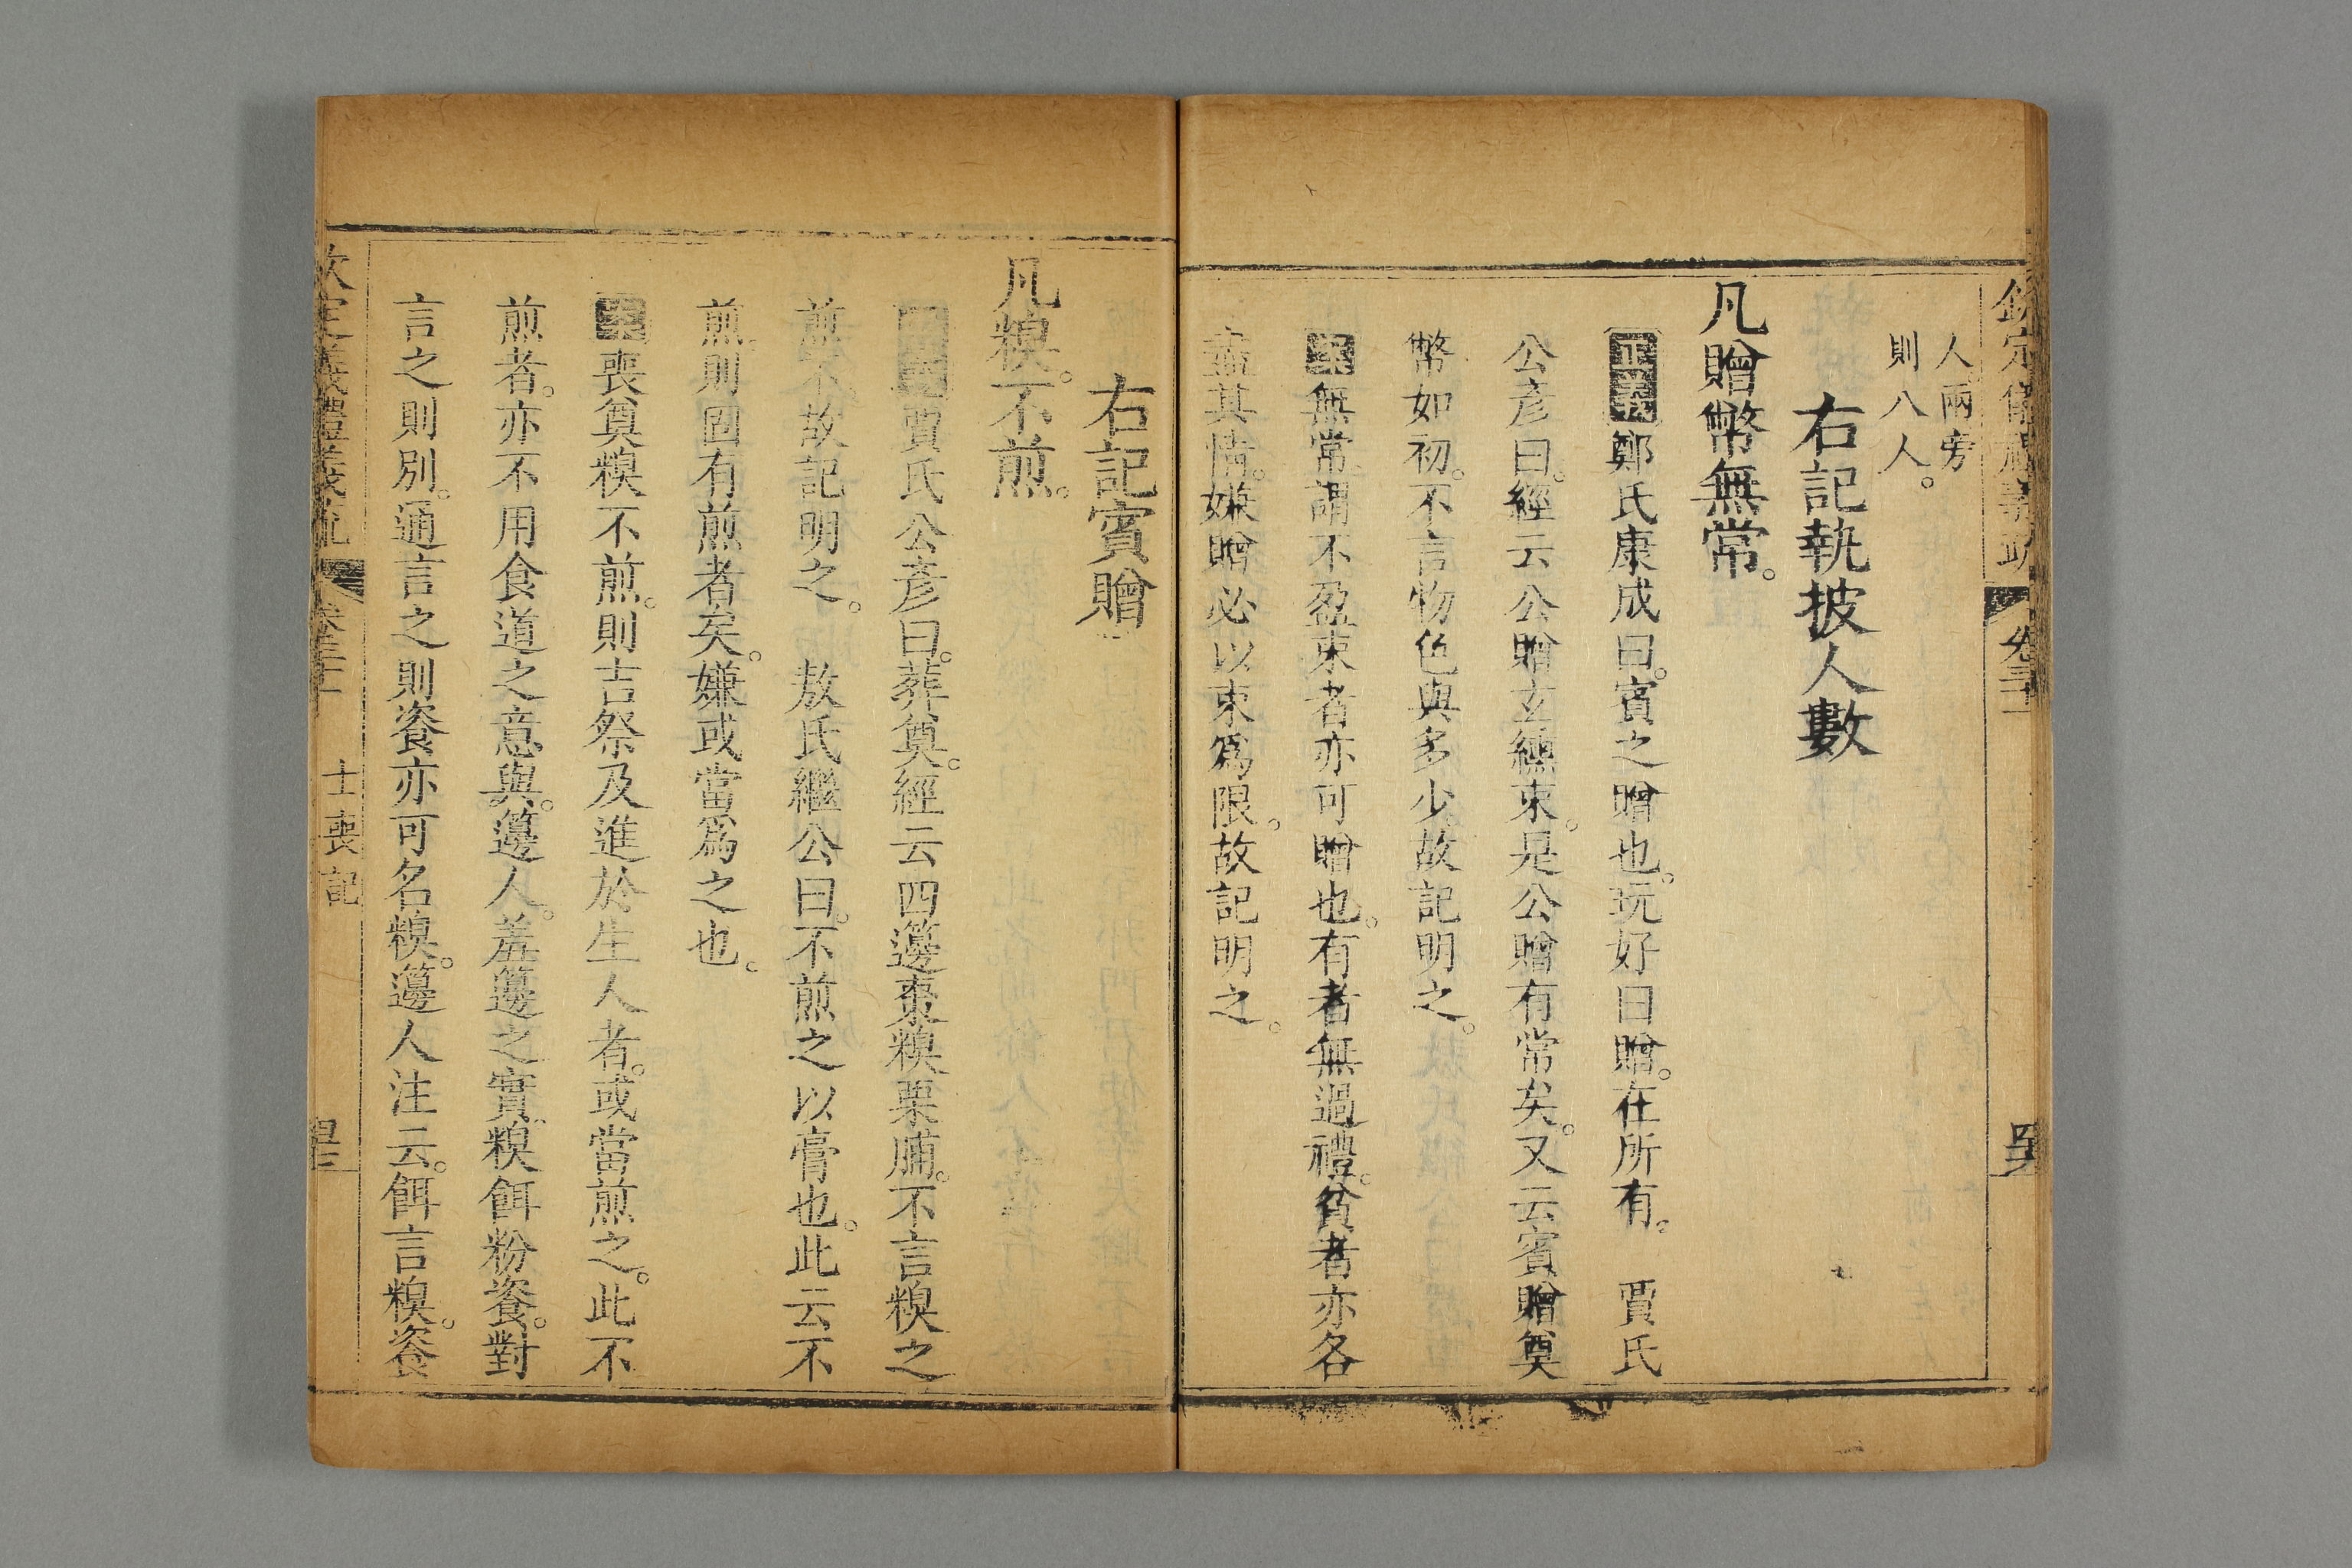 欽定儀禮義疏 卷三十一
人兩旁
則八人。
右記執披人數
凡贈幣無常。
正義鄭氏康成曰。賓之贈也。玩好曰贈。在所有。 賈氏
公彥曰。經云公贈玄纁束。是公贈有常矣。又云賓贈奠
幣如初。不言物色與多少。故記明之。
無常。謂不盈束者亦可贈也。有者無過禮。貧者亦各
盡其情。嫌贈必以束爲限。故記明之。
右記賓贈
凡糗。不煎。
賈氏公彥曰。葬奠。經云四籩棗糗栗脯。不言糗之
煎不。故記明之。 敖氏繼公曰。不煎之以膏也。此云不
煎。則固有煎者矣。嫌或當爲之也。
喪奠糗不煎。則吉祭及進於生人者。或當煎之。此不
煎者。亦不用食道之意與。籩人。羞籩之實。糗餌粉餈。對
言之則別。通言之則餈亦可名糗。籩人注云。餌言糗。餈
欽定儀禮義疏 卷三十一 士喪記